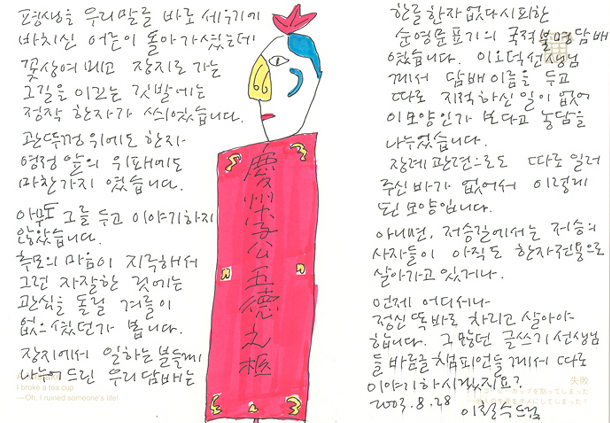 평생을 우리말을 바로 세우기에
바치신 어른이 돌아가셨는데
꽃상여 메고 장지로 가는
그길을 이끄는 깃발에는
정작 한자가 씌였습니다.
관뚜껑 위에도 한자
영정 앞의 위패에도
마찬가지 였습니다.
아무도 그를 두고 이야기하지
않았습니다.
추모의 마음이 지극해서
그런 자잘한 것에는
관심을 돌릴 겨를이
없으셨던가 봅니다.
장지에서 일하는 분들께
나누어 드린 우리담배는
I broke a tea cup
— Oh, I ruined someone's life!
慶州李公五德之柩
한글 한자 없다시피한
순영문표기의 국적불명담배
였습니다. 이오덕선생님
께서 담배이름을 두고
따로 지적하신 일이 없어
이모양인가 보다고 농담을
나누었습니다.
장례 관련으로도 따로 일러
주신바가 없어서 이렇게
된 모양입니다.
아니면, 저승길에서는 저승의
사자들이 아직도 한자전용으로
살아가고 있거나.
언제 어디서나
정신 똑바로 차리고 살아야
합니다. 그 많던 글쓰기 선생님
들 바름글 챔피언들께서 따로
이야기하시겠지요?
2003.8.28 이철수드림
失敗